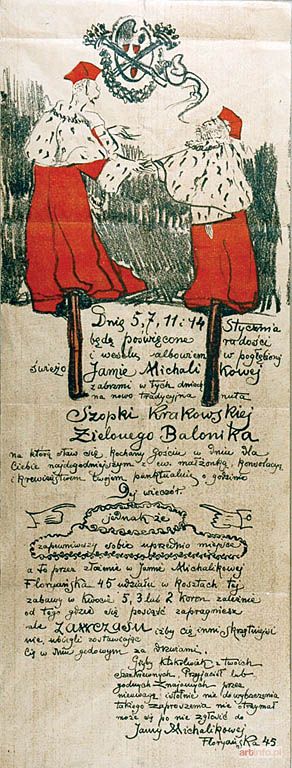 Dnie 5, 7, 11 i 14 Stycznia
będą poświęcone radości
i weselu albowiem w pogłębionej
świeżo Jamie Michalikowej
zabrzmi w tych dniach
na nowo tradycyjna nuta
Szopki Krakowskiej
Zielonego Balonika
na którą staw się Kochany Gościu w dniu dla
Ciebie najdogodniejszym z ew. małżonką, konsolacyą
i krewieństwem twojem punktualnie o godzinie
9ej wieczór
jednak że
zapewniwszy sobie uprzednio miejsce
a to przez złożenie w Jamie Michalikowej
Floryańska 45 udziału w kosztach tej
zabawy w kwocie 5, 3 lub 2 koron zależnie
od tego gdzie się posiąść zapragniesz
ale zawczasu iżby Cię inni skrzętniejsi
nie ubiegli zostawiając
Cię w dniu godowym za drzwiami.
Gdyby ktokolwiek z twoich
Przyjaciół lub
godnych Znajomych przez
nieuwagę istotnie nie do wybaczenia
takiego zaproszenia nie otrzymał
może się po nie zgłosić do
Jamy Michalikowej
Floryańska 45
artinfo.pl